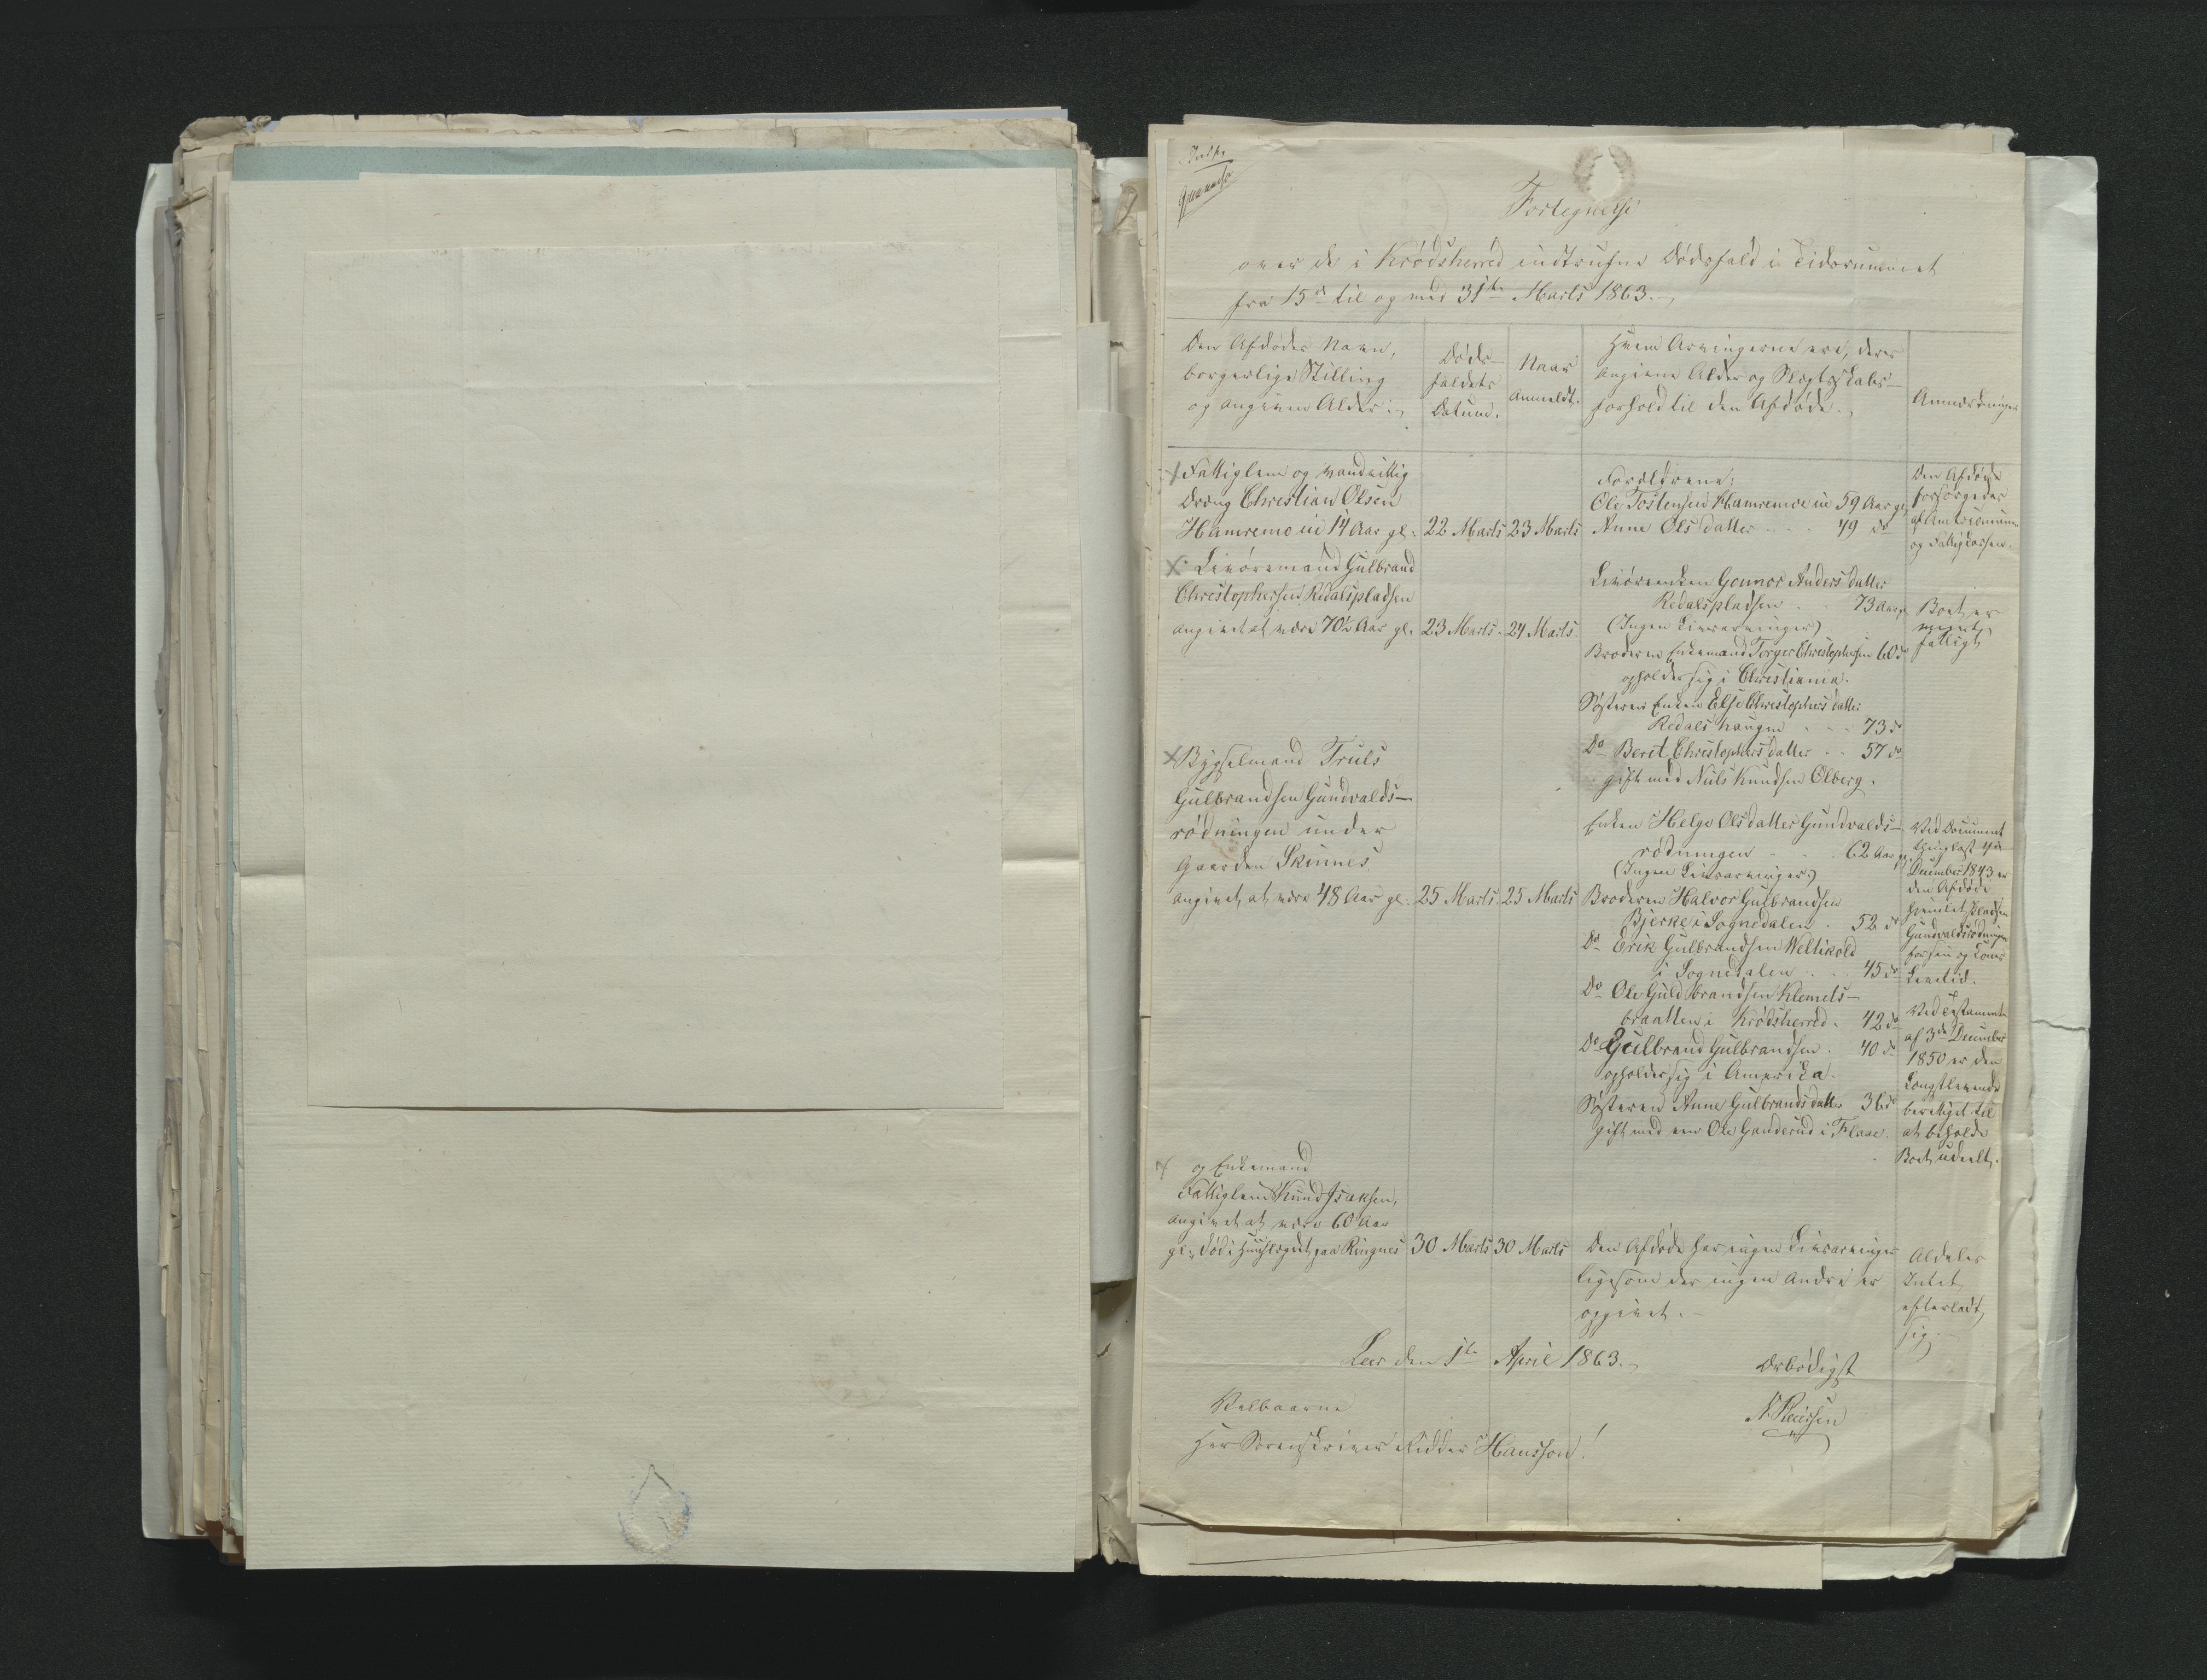 Fortegnelse
over de i Krødsherred indtrufne Dødsfald i Tidsrummet
fra 15de til og med 31te Marts 1863.
Den Afdødes Navn,
borgerlige Stilling
og angivne Alder.
Døds-
faldets
Datum.
Naar
anmeldt.
Hvem Arvingerne ere, deres
angivne Alder og Slægtskabs-
forhold til den Afdøde.
Anmærkninger
Fattiglem og vandvittig
Dreng Christian Olsen
Hamremoen 14 Aar gl.
22 Marts
23 Marts
Forældrene:
Ole Tostensen Hamremoen 59 Aar gl.
Anne Olsdatter 49 do
Den Afdøde
forsørgedes
af Amtscommunen
og Fattigkassen.
Livøremand Gulbrand
Christophersen Redalspladsen
angivet at være 70½ Aar gl.
23 Marts
24 Marts
Livørenken Gounor Andersdatter
Redalspladsen 73 Aar gl.
(Ingen Livsarvinger)
Broderen Enkemand Torger Christophersen 60 do
opholder sig i Christiania.
Søsteren Enken Else Christophersdatter
Redalshaugen 73 do
Do Berit Christophersdatter 57 do
gift med Niels Knudsen Olberg.
Boet er
meget
fattigt
Bygselmand Truls
Gulbrandsen Gundvalds-
rødningen under
Gaarden Skinnes
angivet at være 48 Aar gl.
25 Marts
25 Marts
Enken Helge Olsdatter Gundvalds-
rødningen 62 Aar gl.
(Ingen Livsarvinger)
Broderen Halvor Gulbrandsen
Bjerke i Sognedalen 52 do
Do Erik Gulbrandsen Weltikold
i Sognedalen 45 do
Do Ole Guldbrandsen Klemets-
braatten i Krødsherred. 42 do
Do Gulbrand Gulbrandsen 40 do
opholder sig i Amerika.
Søsteren Anne Gulbrandsdatter 36 do
gift med en Ole Ganderud i Flaae.
Ved Document
thinglæst 4de
December 1843 er
den Afdøde
Pladsen
Gundvaldsrødningen
for sin og Kones
Levetid.
Ved Testamente
af 3de December
1850 er den
Længstlevende
berettiget til
at beholde
Boet udeelt.
og Enkemand
Fattiglem Knud Isaksen,
angivet at være 60 Aar
gl. død i paa Ringnes
30 Marts
30 Marts
Den Afdøde har ingen Livsarvinger
ligesom der ingen Andre er
opgivet.
Aldeles
Intet
efterladt
sig.
Leer den 1te April 1863.
Ærbødigst
Velbaarne
Herr Sorenskriver Ridder Hansson!